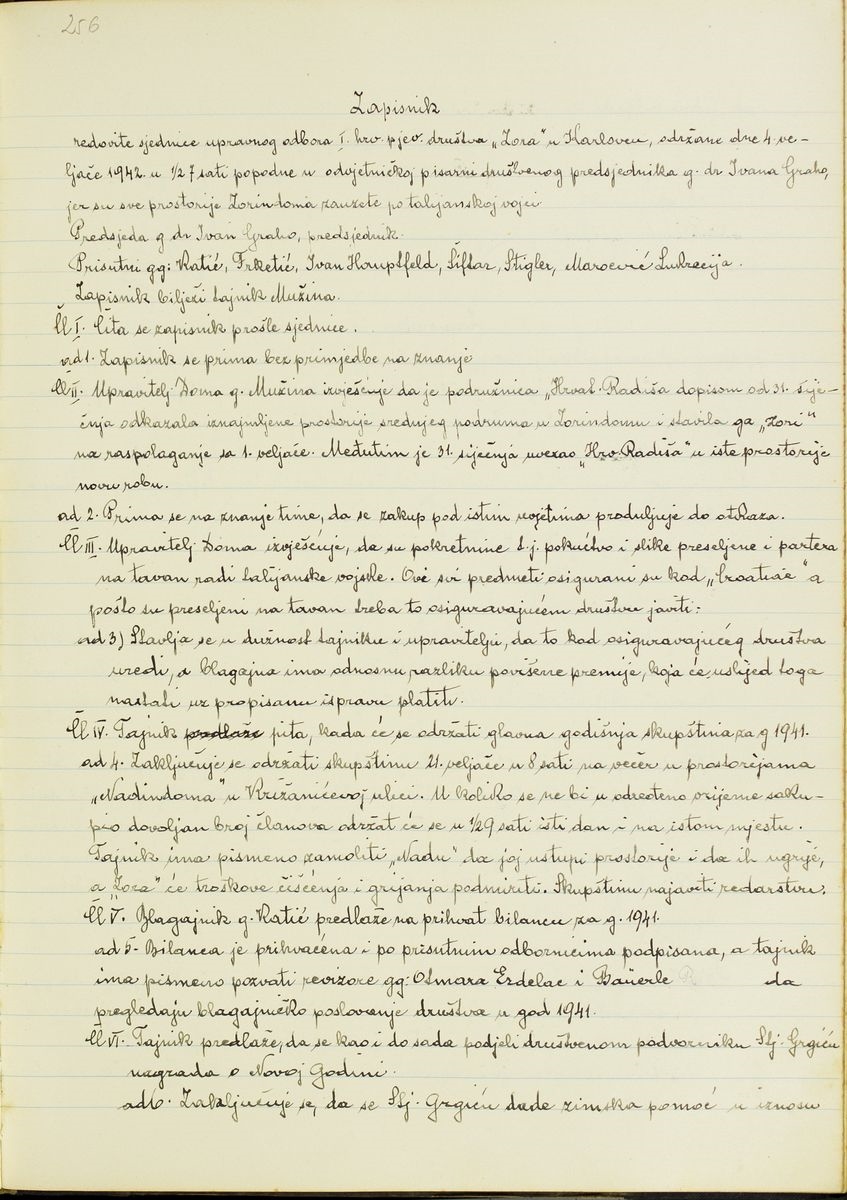 256
Zapisnik
redovite sjednice upravnog odbora I. hrv. pjev. društva „Zora" u Karlovcu, održane dne 4. ve-
ljače 1942. u 1/2 7 sati popodne u odvjetničkoj pisarni društvenog predsjednika g. dr Ivana Graho,
jer su sve prostorije Zorindoma zauzete po talijanskoj vojci.
Predsjeda g dr Ivan Graho, predsjednik.
Prisutni gg: Katić, Frketić, Ivan Hauptfeld, Šiftar, Stigler, Marcević Lukrecija.
Zapisnik bilježi tajnik Mužina.
Čl I. Čita se zapisnik prošle sjednice.
ad 1. Zapisnik se prima bez primjedbe na znanje
Čl II. Upravitelj Doma g. Mužina izvješćuje da je podružnica „Hrvat. Radiša dopisom od 31. sije-
čnja odkazala iznajmljene prostorije srednjeg podruma u Zorindomu i stavila ga „Zori"
na raspolaganje sa 1. veljače. Međutim je 31. siječnja uvezao „Hrv. Radiša" u iste prostorije
novu robu.
ad 2. Prima se na znanje time, da se zakup pod istim uvjetima produljuje do otkaza.
Čl III. Upravitelj Doma izvješćuje, da su pokretnine t. j. pokućtvo i slike preseljene i partera
na tavan radi talijanske vojske. Ove svi predmeti osigurani su kod „Croatiae" a
pošto su preseljeni na tavan treba to osiguravajućem društvu javiti.
ad 3) Stavlja se u dužnost tajniku i upravitelju, da to kod osiguravajućeg društva
uredi, a blagajna ima odnosnu razliku povišene premije, koja će uslijed toga
nastati uz propisanu ispravu platiti.
Čl IV. Tajnik predlaže pita, kada će se održati glavna godišnja skupština za g 1941.
ad 4. Zaključuje se održati skupštinu 21. veljače u 8 sati na večer u prostorijama
„Nadindoma" u Križanićevoj ulici. U koliko se ne bi u određeno vrijeme saku-
pio dovoljan broj članova održat će se u 1/2 9 sati isti dan i na istom mjestu.
Tajnik ima pismeno zamoliti „Nadu" da joj ustupi prostorije i da ih ugrije,
a „Zora" će troškove čišćenja i grijanja podmiriti. Skupštinu najaviti redarstvu.
Čl V. Blagajnik g. Katić predlaže na prihvat bilancu za g. 1941.
ad 5. Bilanca je prihvaćena i po prisutnim odbornicima podpisana, a tajnik
ima pismeno pozvati revizore gg: Otmara Erdelac i Bäuerle da
pregledaju blagajničko poslovanje društva u god 1941.
Čl VI. Tajnik predlaže, da se kao i do sada podjeli društvenom podvorniku Stj. Grgiću
nagrada o Novoj Godini.
ad 6. Zaključuje se, da se Stj. Grgiću dade zimska pomoć u iznosu